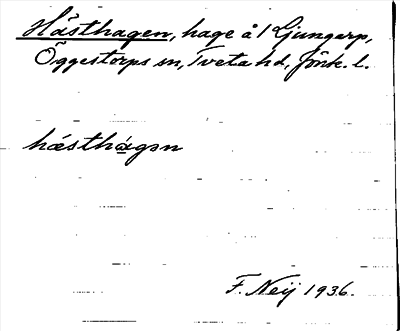 Hästhagen, hage å 1 Ljungarp,
Öggestorps sn, Tveta hd, Jönk. l.
hæ̀sthàgən
F. Neij 1936.